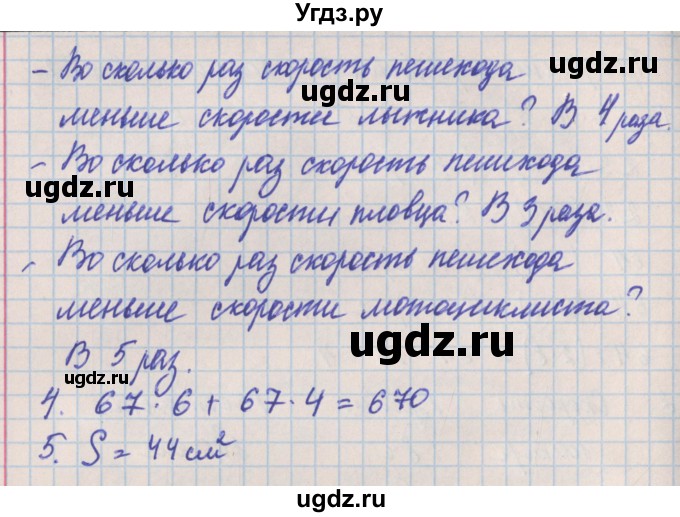 Угдз.ру
- Во сколько раз скорость пешехода
меньше скорости лыжника? В 4 раза.
- Во сколько раз скорость пешехода
меньше скорости пловца? В 3 раза.
- Во сколько раз скорость пешехода
меньше скорости мотоциклиста?
В 5 раз.
4. 67·6 + 67·4 = 670
5. S = 44 см²
ugdz.ru
ugdz.ru
ugdz.ru
ugdz.ru
ugdz.ru
ugdz.ru
ugdz.ru